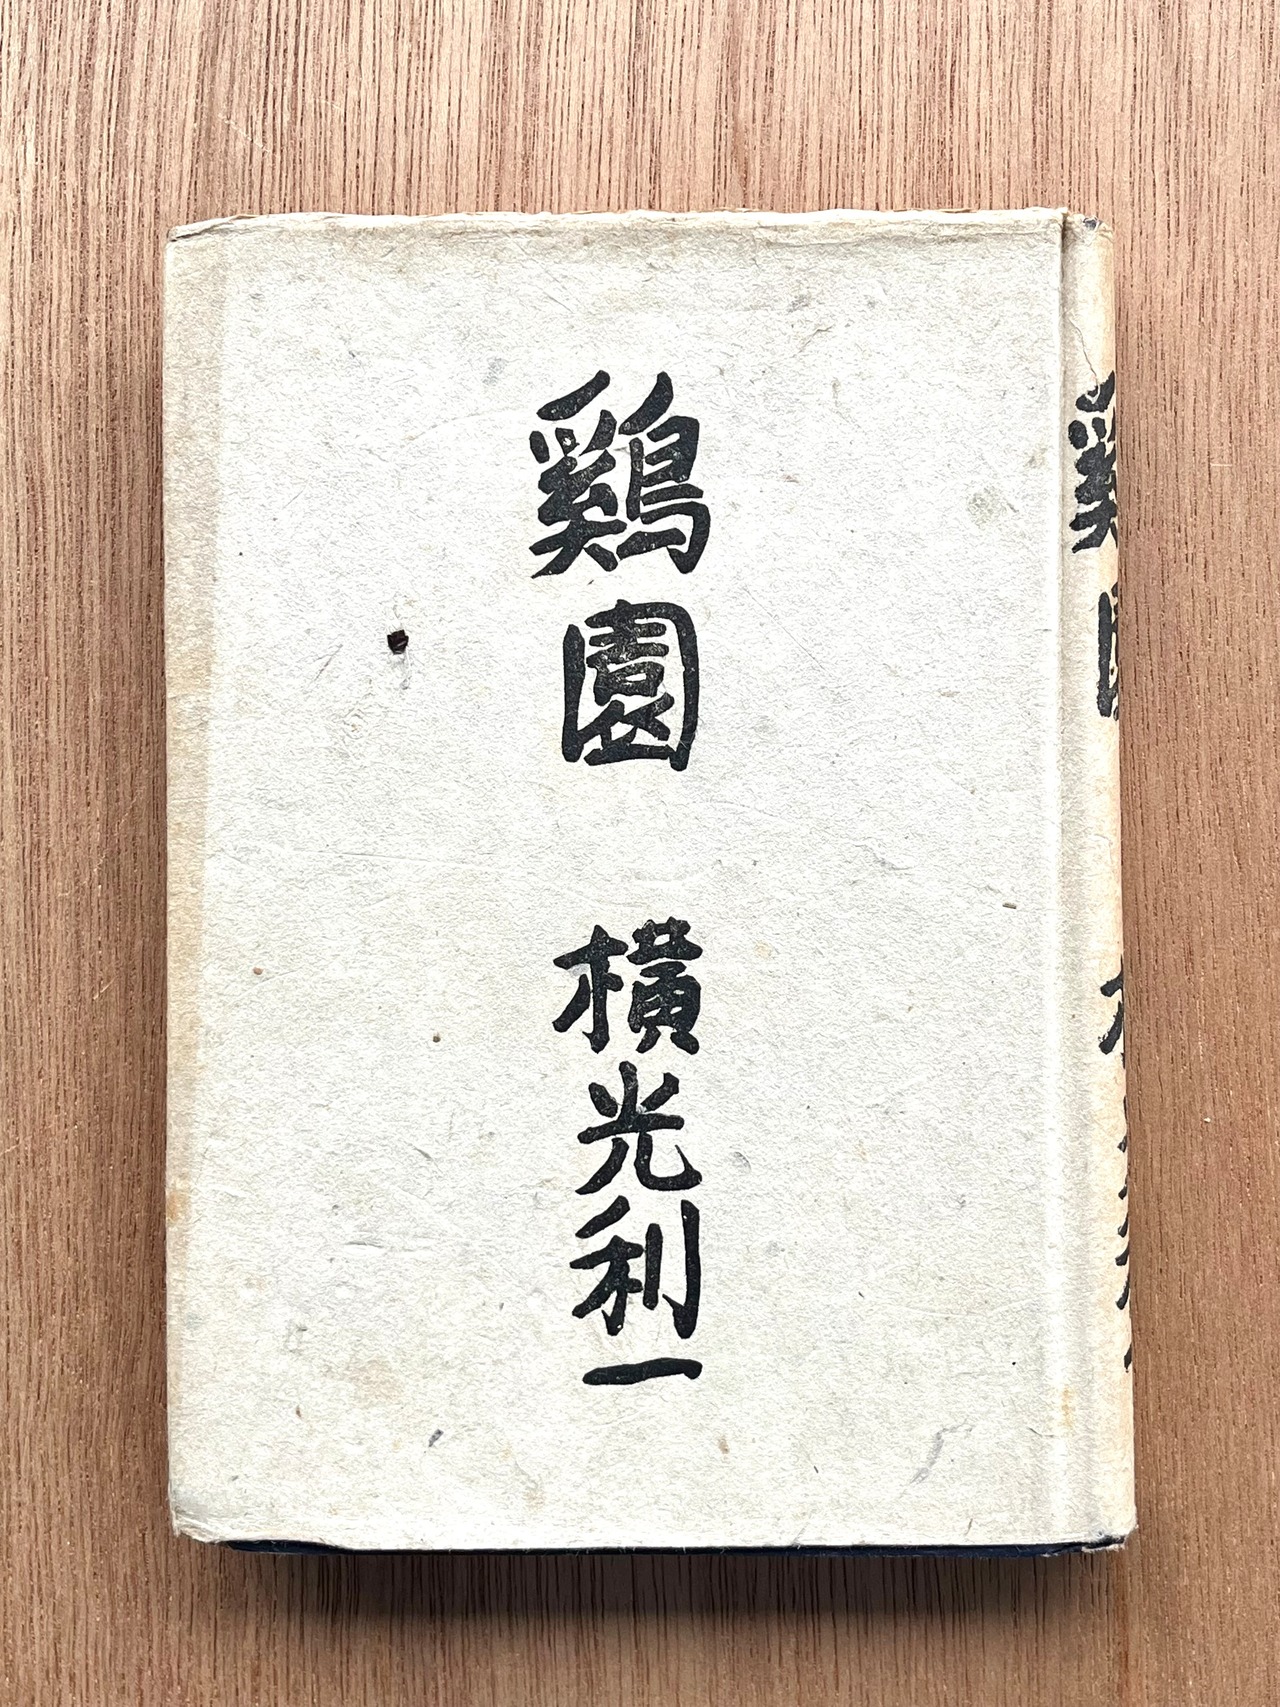 鷄園
橫光利一